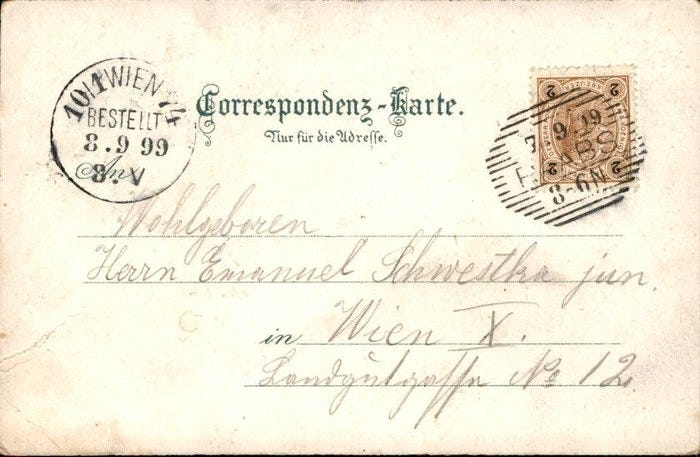 10/1 WIEN 74
BESTELLT
8.9 99
8.V
Correspondenz-Karte.
Nur für die Adresse.
2 2
9.99
ABS
3-6N
2 2
An
Wohlgeboren
Herrn Emanuel Schwestka jun.
in Wien X.
Landgutgasse No 12